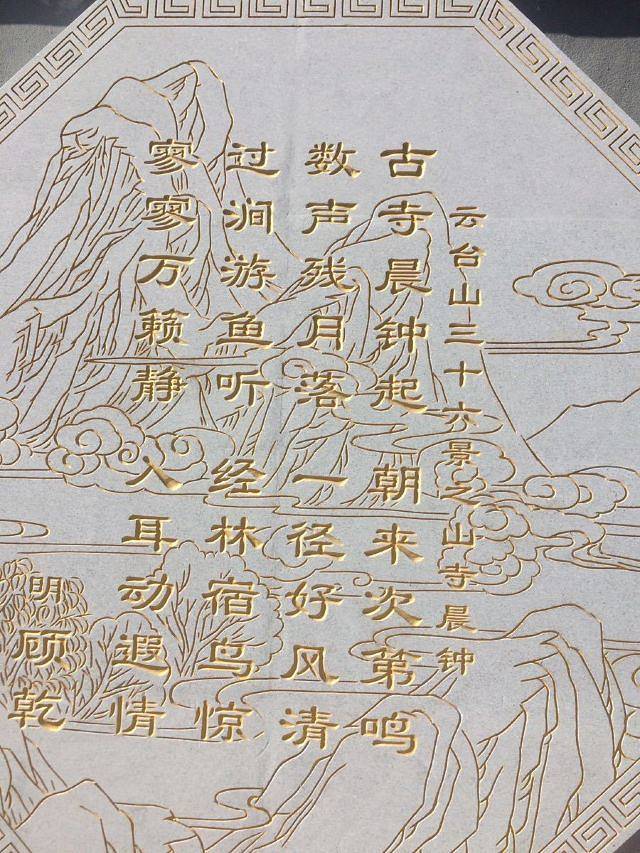 云台山三十六景之山寺晨钟
古寺晨钟起 朝来次第鸣
数声残月落 一径好风清
过涧游鱼听 经林宿鸟惊
寥寥万籁静 入耳动遐情
明 顾乾